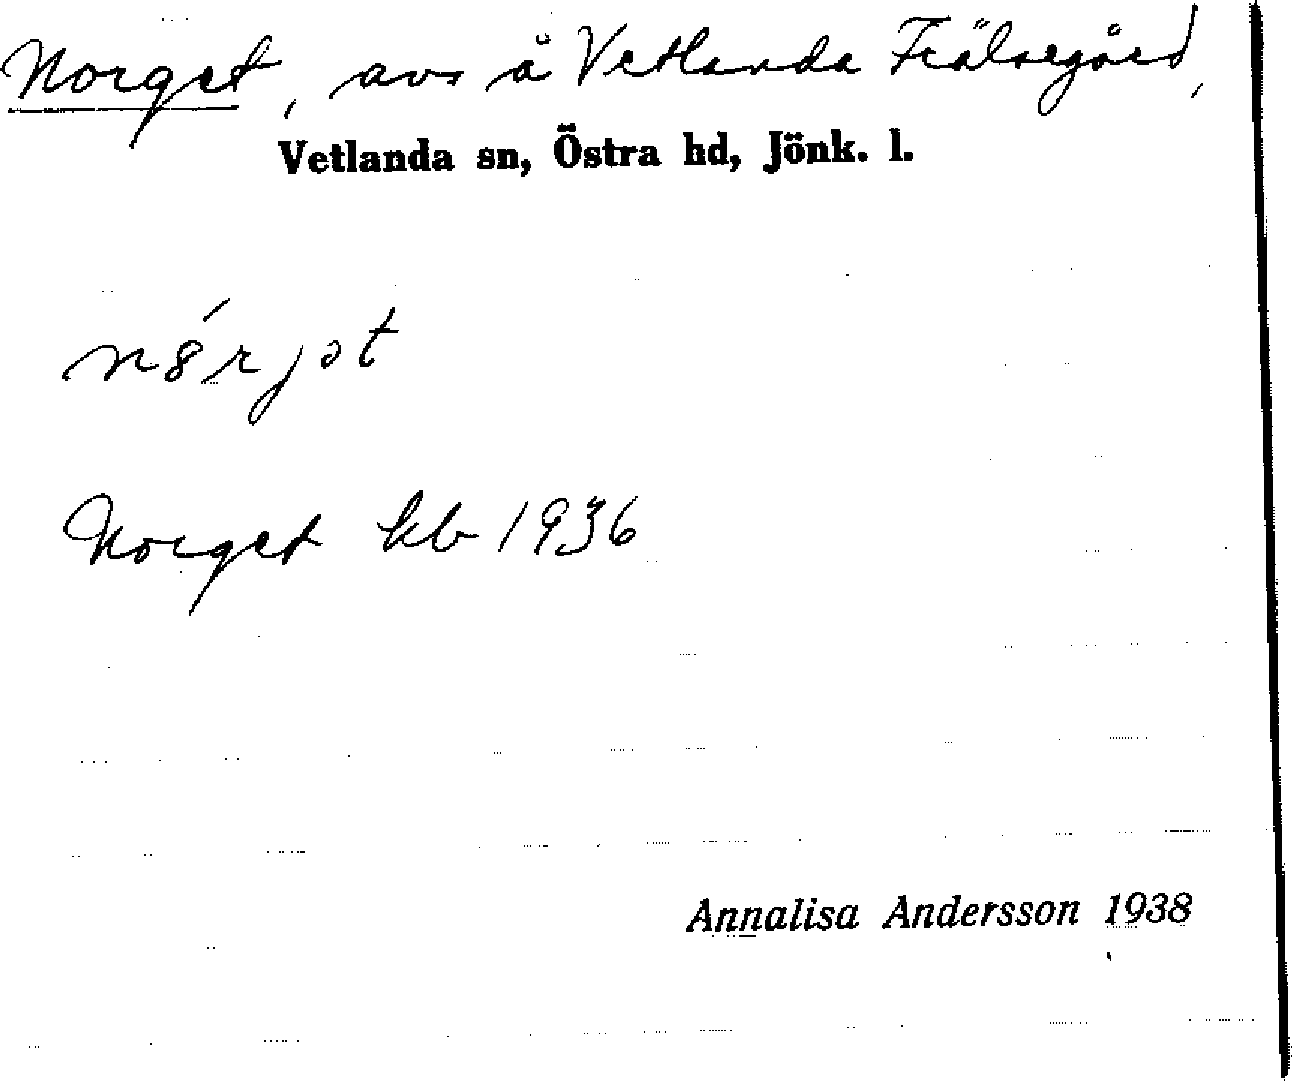 Norget, avs å Vetlanda Frälsegård,
Vetlanda sn, Östra hd, Jönk. l.
n8́rjət
Norget kb 1936
Annalisa Andersson 1938